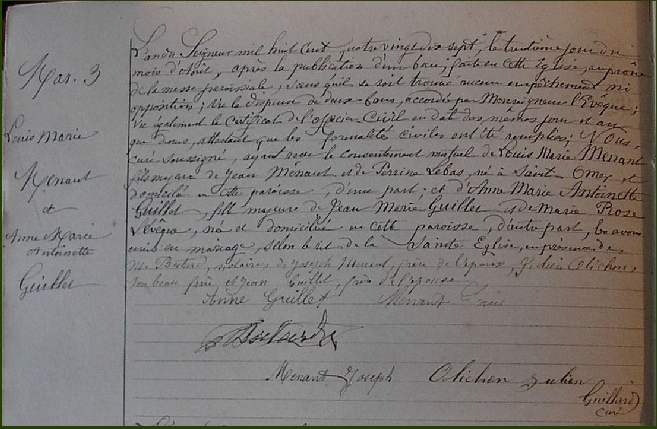 Mar. 3
Louis Marie
Menant
et
Anne Marie
Antoinette
Guillet
L'an du Seigneur mil huit cent quatre vingt dix sept, le trentième jour du
mois d'Août, après la publication d'un ban, faite en cette Eglise, au prône
de la messe paroissiale, sans qu'il se soit trouvé aucun empêchement ni
opposition; Vu la dispense de deux bans, accordé par Monseigneur l'Evêque;
Vu également le Certificat de l'officier Civil en date des mêmes jour et an
que dessus, attestant que les formalités civiles ont été remplies; Nous,
curé soussigné, ayant reçu le consentement mutuel de Louis Marie Menant
fils majeur de Jean Menant et de Perrine Lebas, né à Saint Omer, et
domicilié en cette paroisse, d'une part; et d'Anne Marie Antoinette
Guillet, fille majeure de Jean Marie Guillet et de Marie Rose
née et domiciliée en cette paroisse, d'autre part, les avons
unis en mariage, selon le rit de la Sainte Eglise, en présence de
Me notaire, de Joseph Menant, frère de l'époux, Julien Olichon,
son beau frère, et Jean Guillet, père de l'épouse
Anne Guillet Menant Louis
Menant Joseph Olichon Julien
Guillard
curé